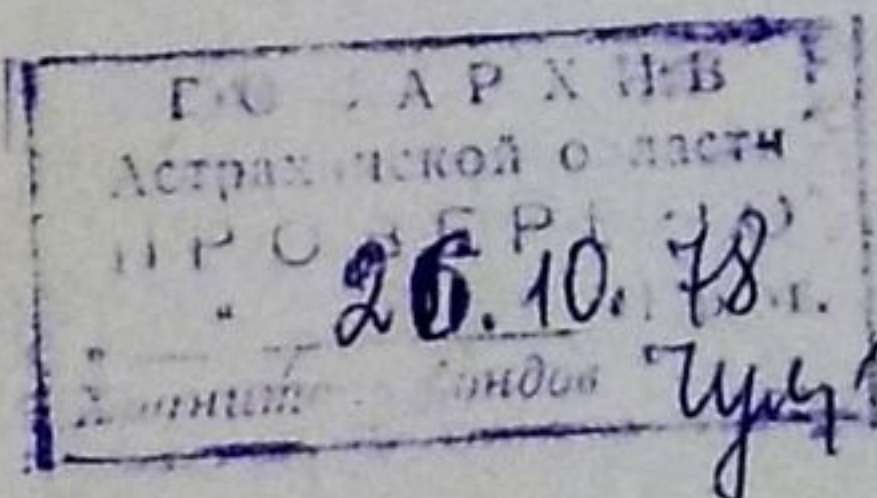 ГОСАРХИВ
Астраханской области
ПРОВЕРЕНО
" 26.10.78 г.
Хранитель фондов